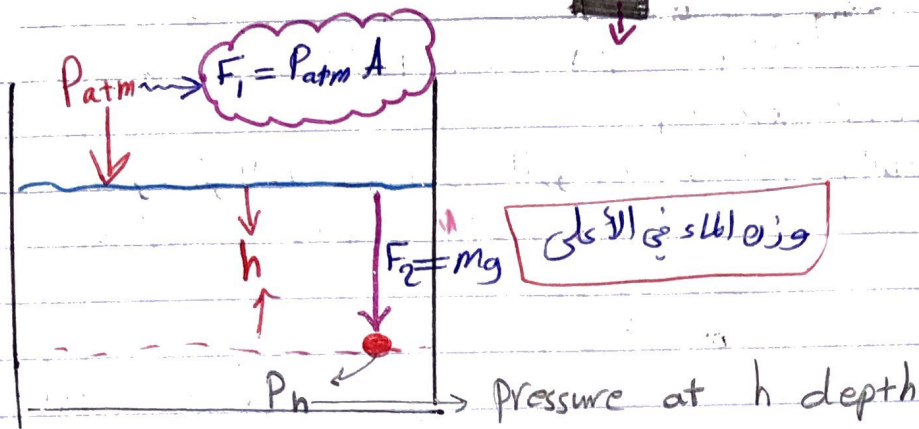 P_atm F₁ = P_atm A
h
F₂ = mg
وزن الماء في الأعلى
P_h pressure at h depth